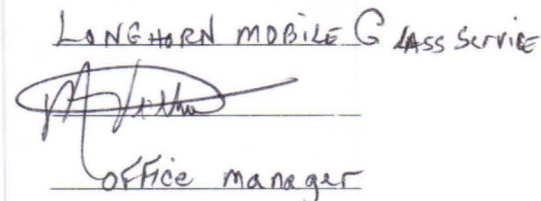 LONGHORN MOBILE GLASS SERVICE
office manager